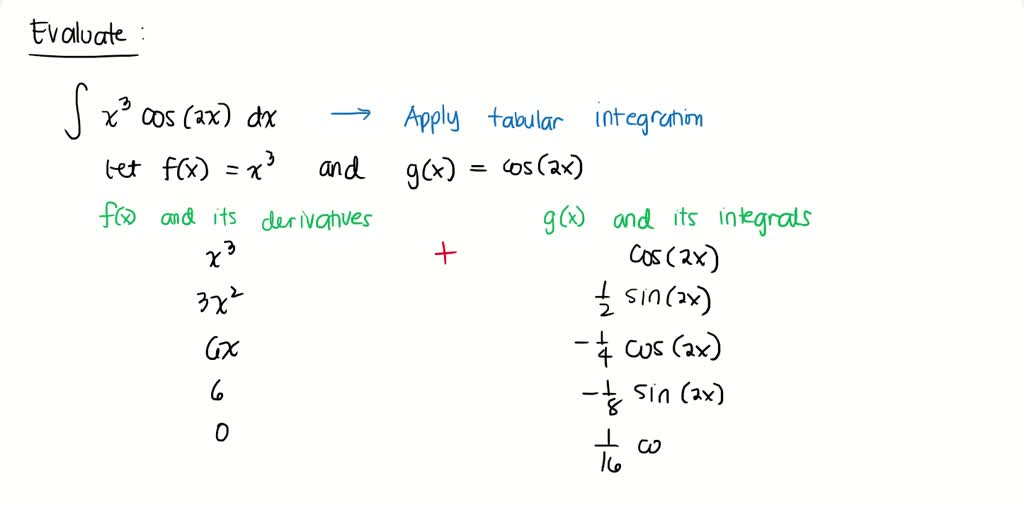 Evaluate :
∫ x³ cos(2x) dx → Apply tabular integration
Let f(x) = x³ and g(x) = cos(2x)
f(x) and its derivatives g(x) and its integrals
x³ + cos(2x)
3x² 1/2 sin(2x)
6x -1/4 cos(2x)
6 -1/8 sin(2x)
0 1/16 co